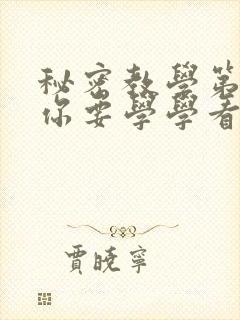 秘密教學第
你要學學看
賈曉寧